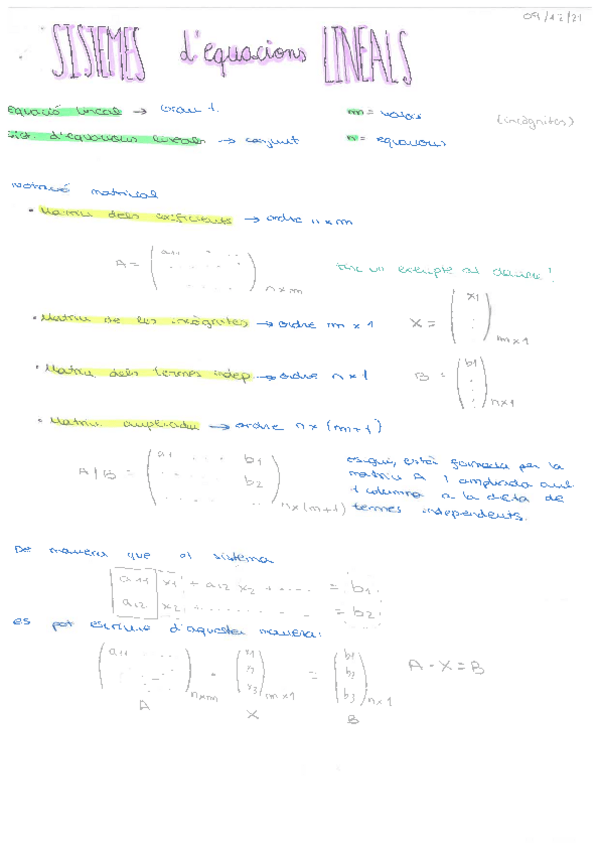 09/12/21
SISTEMES d'equacions LINEALS
equació lineal → grau 1. m = valors (incògnites)
sist. d'equacions lineals → conjunt n = equacions
Notació matricial
• Matriu dels coeficients → ordre n x m
A = ( a11 . . . ) n x m
tinc un exemple al
• Matriu de les incògnites → ordre m x 1 X = ( x1 ) m x 1
• Matriu dels termes indep → ordre n x 1 B = ( b1 ) n x 1
• Matriu ampliada → ordre n x (m+1)
A | B = ( a1 . . . b1 b2 ) n x (m+1)
esigui, està formada per la
matriu A i ampliada amb
1 columna a la dreta de
termes independents.
De manera que el sistema
a11 x1 + a12 x2 + .... = b1
a12 x2 ........ = b2
es pot escriure d'aquesta manera:
( a11 . . . ) n x m · ( x1 x2 x3 ) m x 1 = ( b1 b2 b3 ) n x 1 A · X = B
A X B